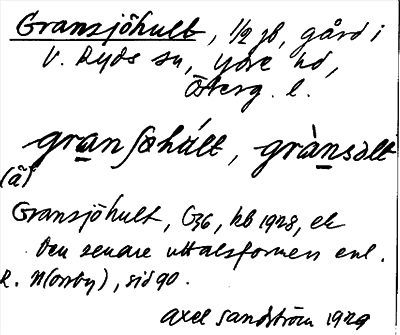 Gransjöhult, 1/2 jb, gård i
V. Ryds sn, Ydre hd,
Österg. l.
granʃøhált, grànsɔlt
(ã)
Gransjöhult, G36, kb 1928, ek
Den senare uttalsformen enl.
R. N(orrby), sid 90.
Axel Sandström 1929